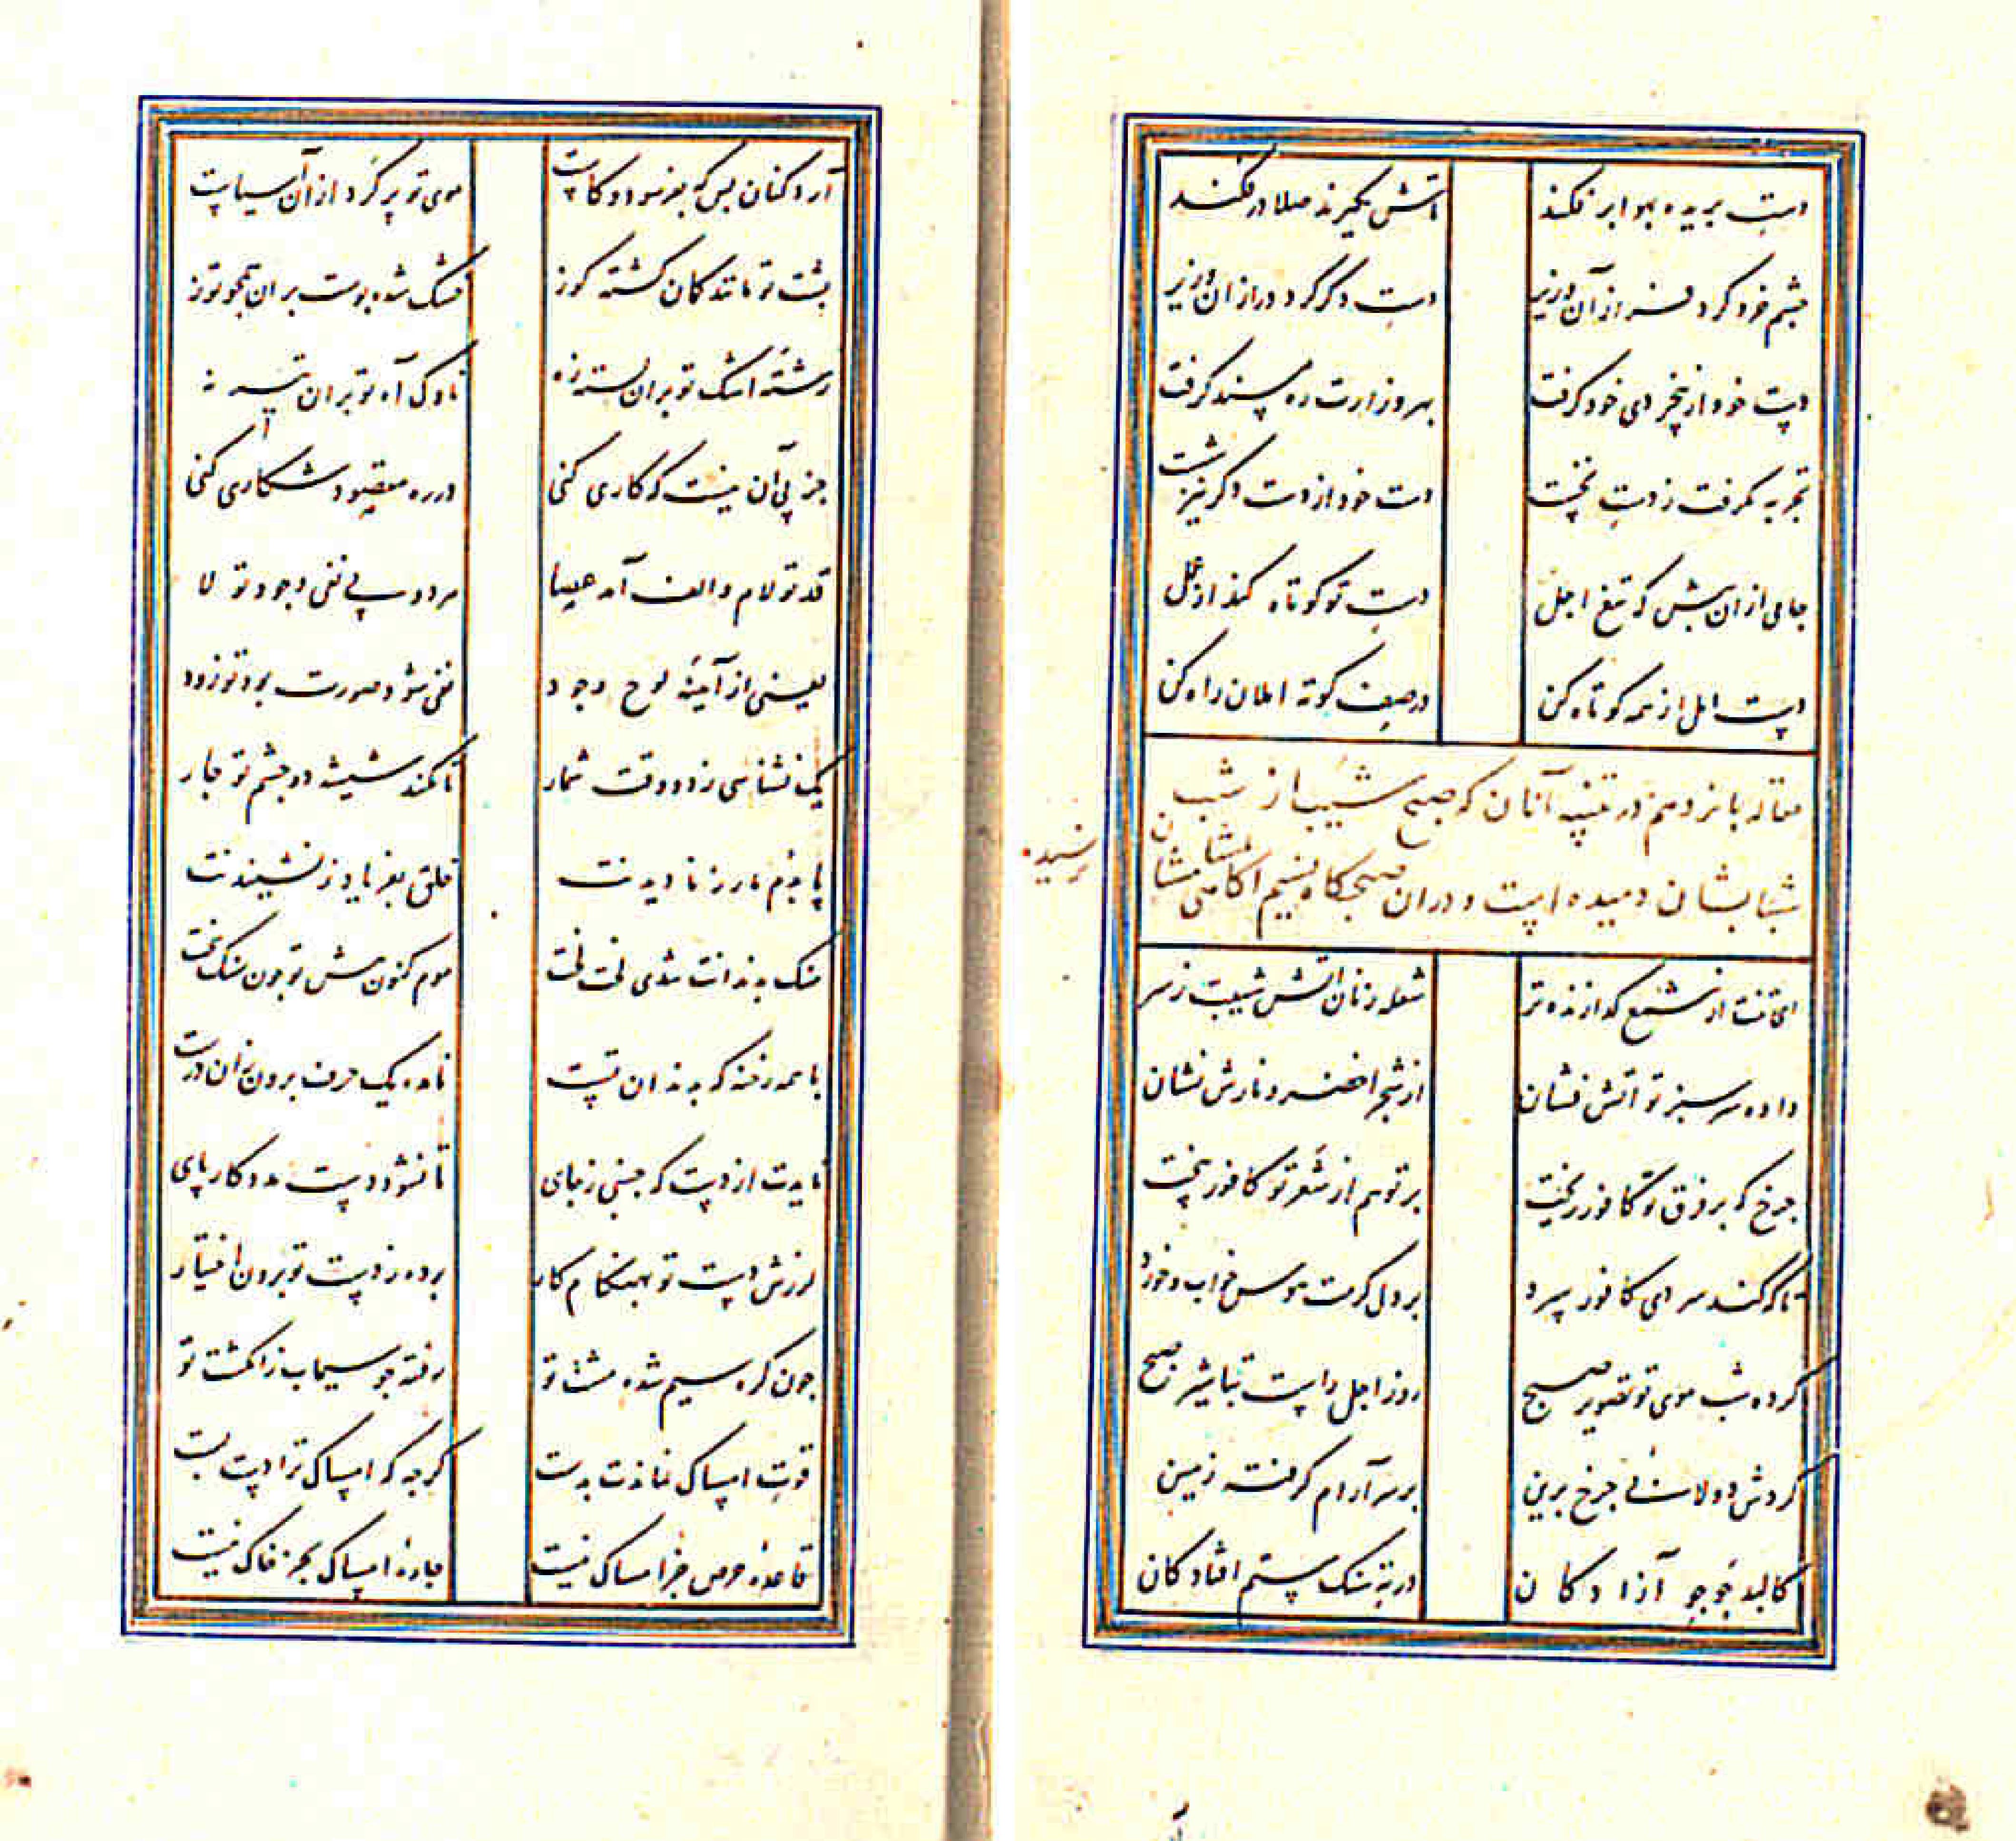 دست بریده بهوا برفکند
تاش نگیرند صلا درفکند
چشم خرد کرد فراز آن وزیر
دست دگر کرد دراز آن وزیر
دست خود از خنجر دی خود گرفت
بهر وزارت ره مسند گرفت
تجربه نگرفت ز دست نخست
دست خود از دست دگر نیز شست
جامی ازان پیش که تیغ اجل
دست تو کوتاه کند از عمل
دست امل از همه کوتاه کن
در صف کوته املان راه کن
مقاله پانزدهم در تنبیه آنان که صبح شیب از شب
شبابشان دمیده است و دران صبحگاه نسیم آگاهی بمشامشان
نرسیده
ای تنت از شمع گدازنده تر
شعله زنان آتش شیبت ز سر
داده سر سبز تو آتش فشان
از شجر اخضر و نارش نشان
چرخ که بر فرق تو کافور ریخت
بر تو هم از شعر تو کافور بیخت
تا که کند سردی کافور سرد
بر دل گرمت هوس خواب و خورد
کرده شب موی تو تصویر صبح
روز اجل راست تباشیر صبح
گردش دولاب چرخ برین
بر سر آرام گرفته زمین
کالبد چو جو آزادگان
در ته سنگ ستم افتادگان
آرد کنان بس که بفرسودکاست
موی تو پر گرد ازان آسیاست
پشت تو مانند کمان گشته کوز
خشک شده پوست بران همچو توز
رشته اشک تو بران بسته زه
ناوک آه تو بران تیر نه
جز پی آن نیست که کاری کنی
در ره مقصود شکاری کنی
قد تو لام و الف آمد عصا
هر دو پی نفی وجود تو لا
یعنی از آینه لوح وجود
نفی شود صورت بود تو زود
یک نشناسی ز دو وقت شمار
تا نکند شیشه دو چشم تو چار
خلق بفریاد ز نشنیدنت
سنگ بدندانت شدی لخت لخت
موم کنون پیش تو چون سنگ سخت
با همه رخنه که بدندان تست
نامده یک حرف برون زان درست
نایدت از دست که جنبی ز جای
تا نشود دست مددکار پای
لرزش دست تو بهنگام کار
برده ز دست تو برون اختیار
چون گره سیم شده مشت تو
رفته چو سیماب ز انگشت تو
قوت امساک نماندت بدست
گرچه که امساک ترا دست بست
قاعده حرص جز امساک نیست
چاره امساک بجز خاک نیست